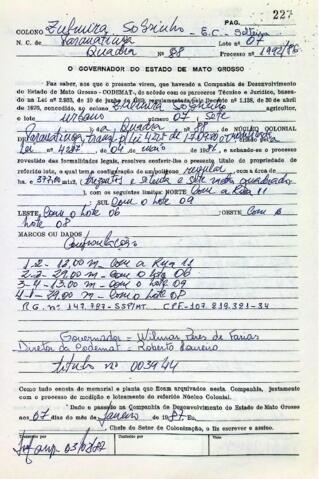 PAG. 227
COLONO Zulmira Sobrinho - E.C - Solteira
N. C. de Paranatinga Lote nº 07
Quadra nº 88 Processo nº 1992/86
O GOVERNADOR DO ESTADO DE MATO GROSSO
Faz saber, aos que o presente virem, que havendo a Companhia de Desenvolvimento
do Estado de Mato Grosso - CODEMAT-, de acordo com os pareceres Técnico e Jurídico, basea-
Zulmira Sobrinho agricultor,
urbano primeiro nº 07 - sete
Quadra nº 88 NÚCLEO COLONIAL
Paranatinga
Lei nº 4287 04 maio de 1981 e achando-se o processo
revestido das formalidades legais, resolveu conferir-lhe o presente título de propriedade de
referido lote, o qual tem a configuração de um polígono regular com a área de
ha= 377,00 m2 (Trezentos e setenta e sete metros quadrados
), com os seguintes limites: NORTE Com a Rua 11
; SUL Com o lote 09
LESTE Com o lote 06 ; OESTE Com o
lote 08
MARCOS OU DADOS
Confrontações
1-2 - 13,00 m - Com a Rua 11
2-3 - 29,00 m - Com o lote 06
3-4 - 13,00 m - Com o lote 09
4-1 - 29,00 m - Com o lote 08
R.G. nº 147.787-SSP/MT. CPF-107.819.381-34
Governador = Wilmar Peres de Farias
Diretor da Codemat = Roberto Loureiro
Titulo nº 003944
Como tudo consta do memorial e planta que foram arquivados nesta Companhia, juntamente
com o processo de medição e loteamento do referido Núcleo Colonial.
Dado e passado na Companhia de Desenvolvimento do Estado de Mato Grosso
aos 07 dias do mês de janeiro de 1987. Eu,
Chefe do Setor de Colonização, o fiz escrever e assino.
03/02/87